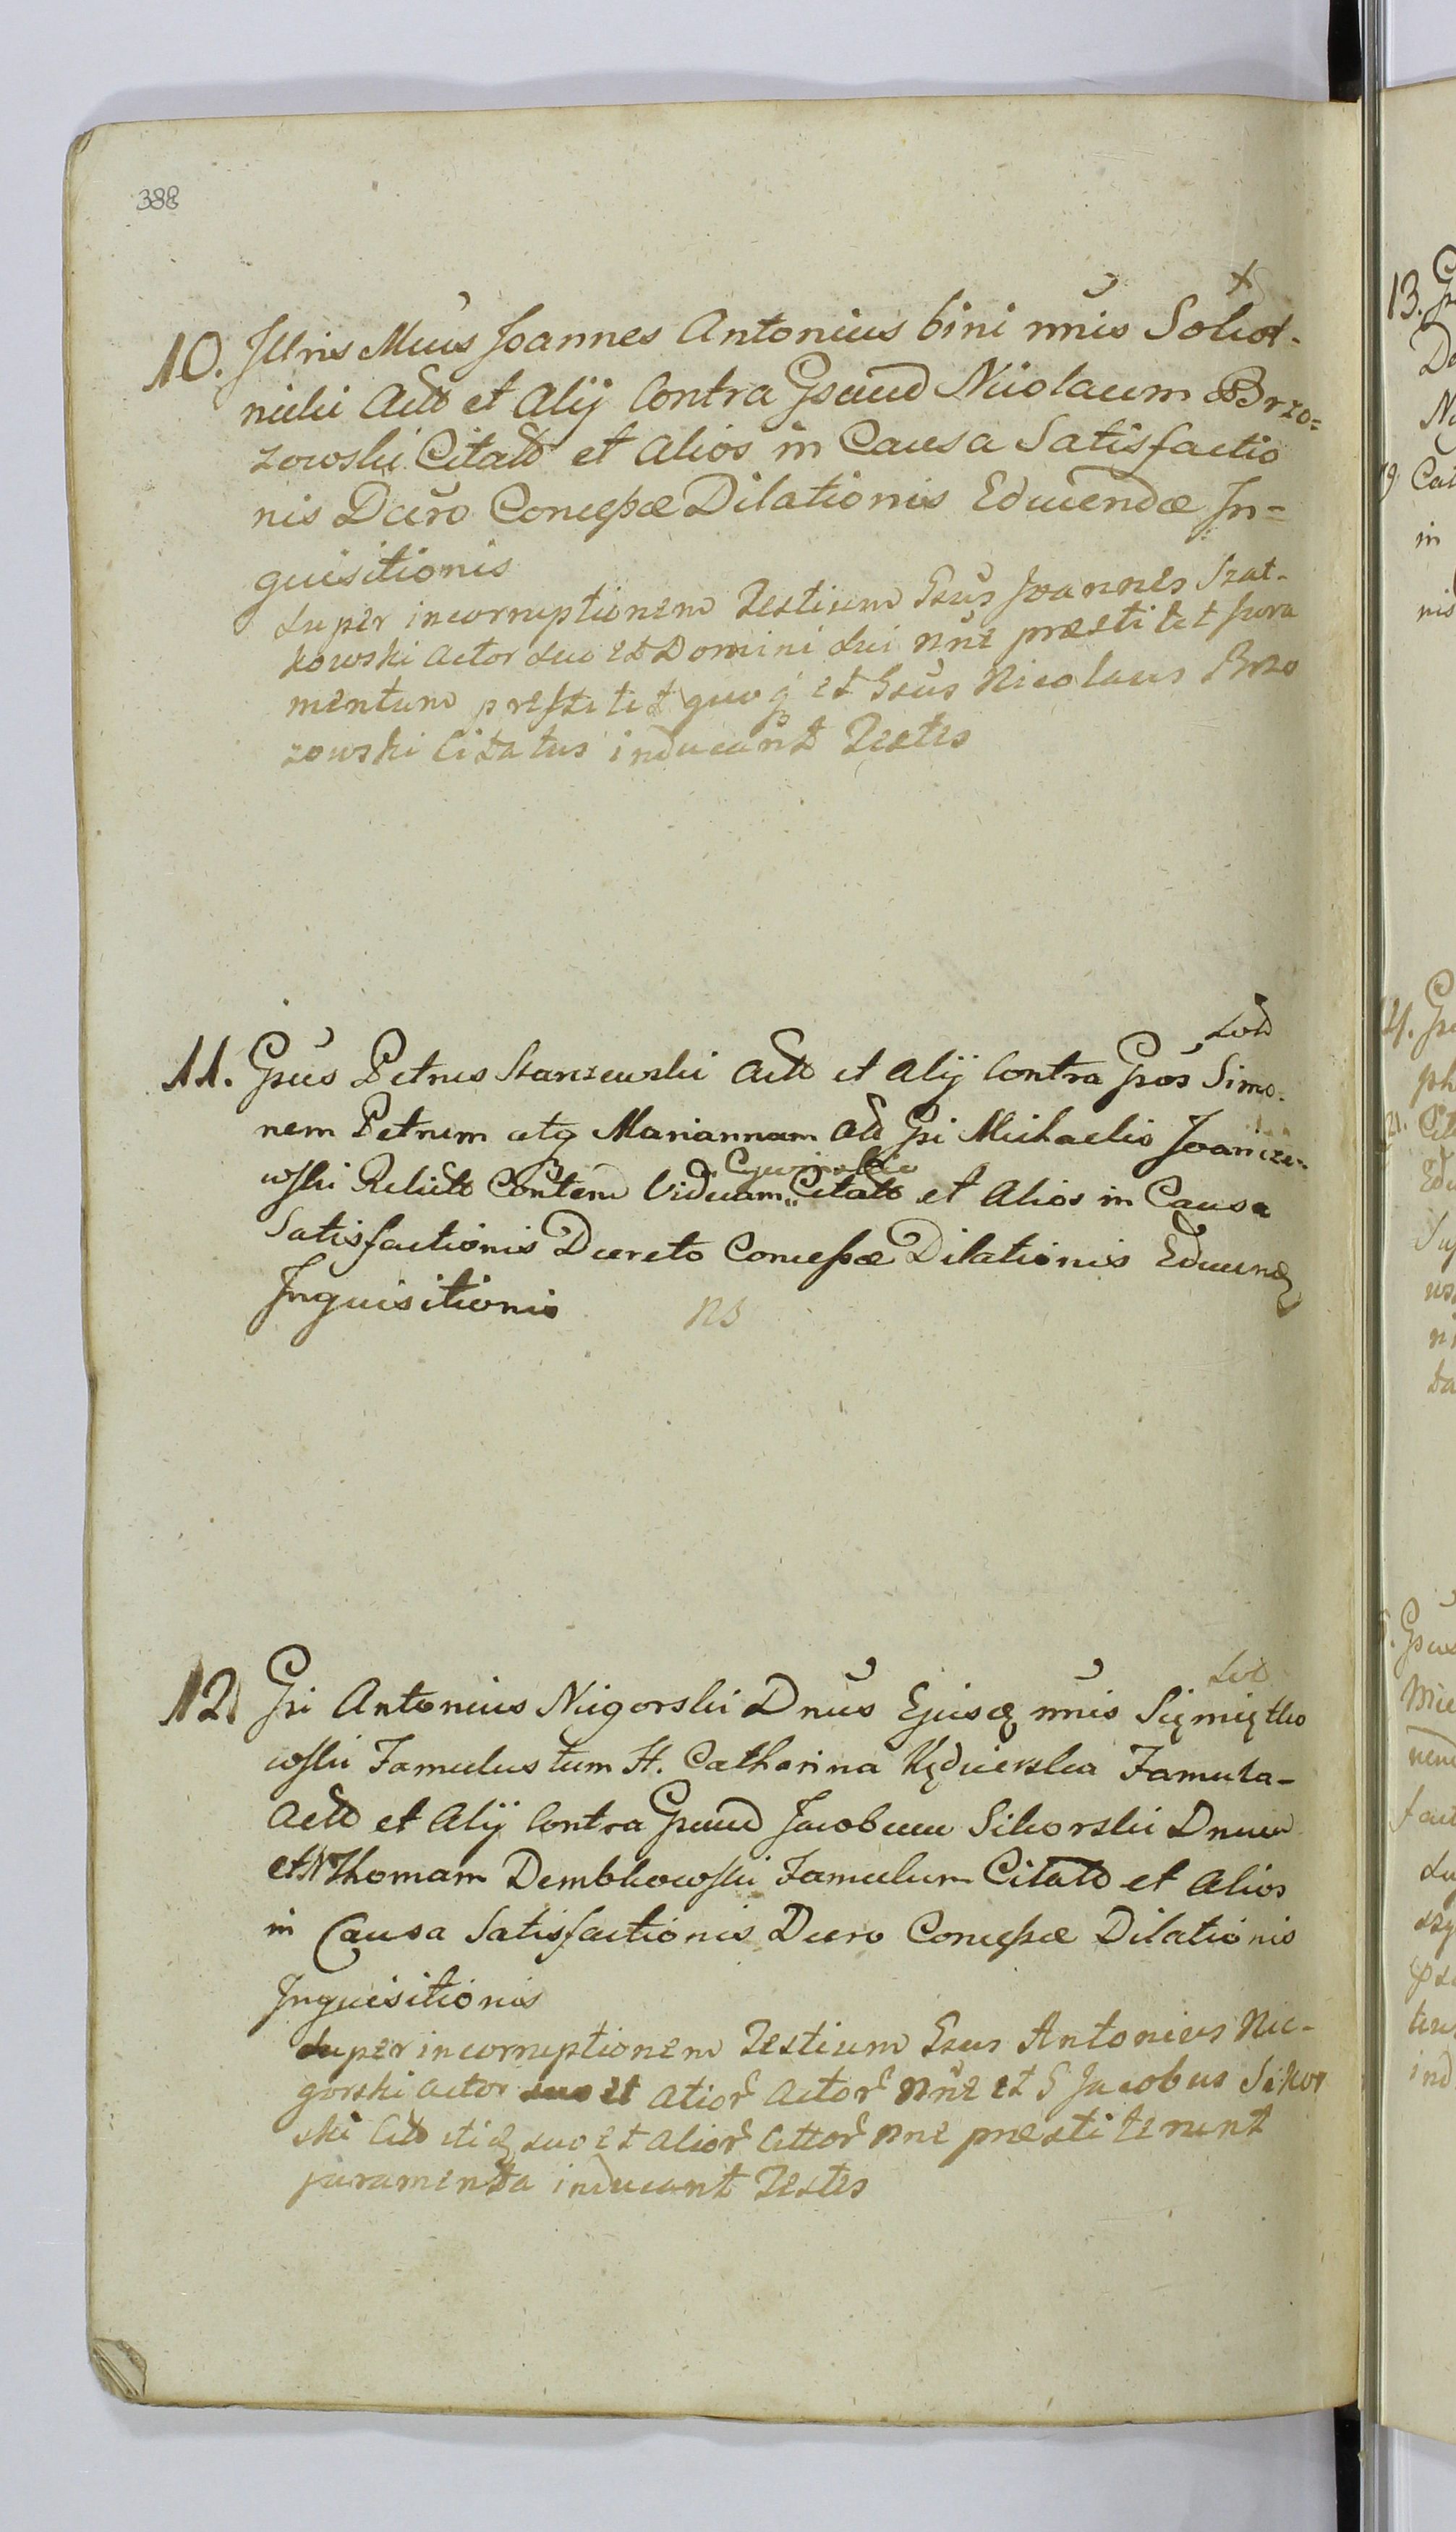 388
x
10. Jllris Mcus Joannes Antonius bini nnis Sokol-
nicki Actt et Alij Contra Gsum Nicolaum Brzo=
zowski Citatt et Alios in Causa Satisfactio
nis Decro Concessæ Dilationis Educendæ In=
quisitionis
Super incorruptionem Testium Gsus Joannes Szat-
kowski Actor suo et Domini sui nne præstitit Jura
mentum prestitit quoq et Gsus Nicolaus Brzo
zowski Citatus inducant Testes
11. Gsus Petrus Staniewski Actt et Alij Contra Gsos Simo-
nem Petrum atq Mariannam Gsi Michaelis
wski Relictt Viduam Citatt et Alios in Causa
Satisfactionis Decreto Concessæ Dilationis Educend
Inquisitionis ns
12 Gsi Antonius Nigorski Dnus Ejusq nnis
wski Famulus tum H. Catharina Famula-
Actt et Alij Contra Gsum Jacobum Sikorski Dnum
et N Thomam Dembkowski Famulum Citatt et Alios
in Causa Satisfactionis Decro Concessæ Dilationis
Inquisitionis
Super incorruptionem Testium Gsus Antonius Nie-
gorski Actor suo et Alior Actor nne et G Jacobus Sikor
ski Citt suo et Alior Cittor nne præstiterunt
juramenta inducant Testes
13.